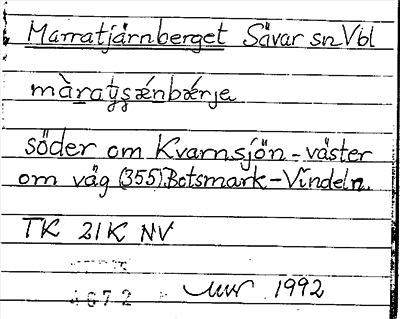 Marratjärnberget Sävar sn Vbl
söder om Kvarnsjön - väster
om väg (355) Botsmark - Vindeln.
TK 21K NV
4672
1992